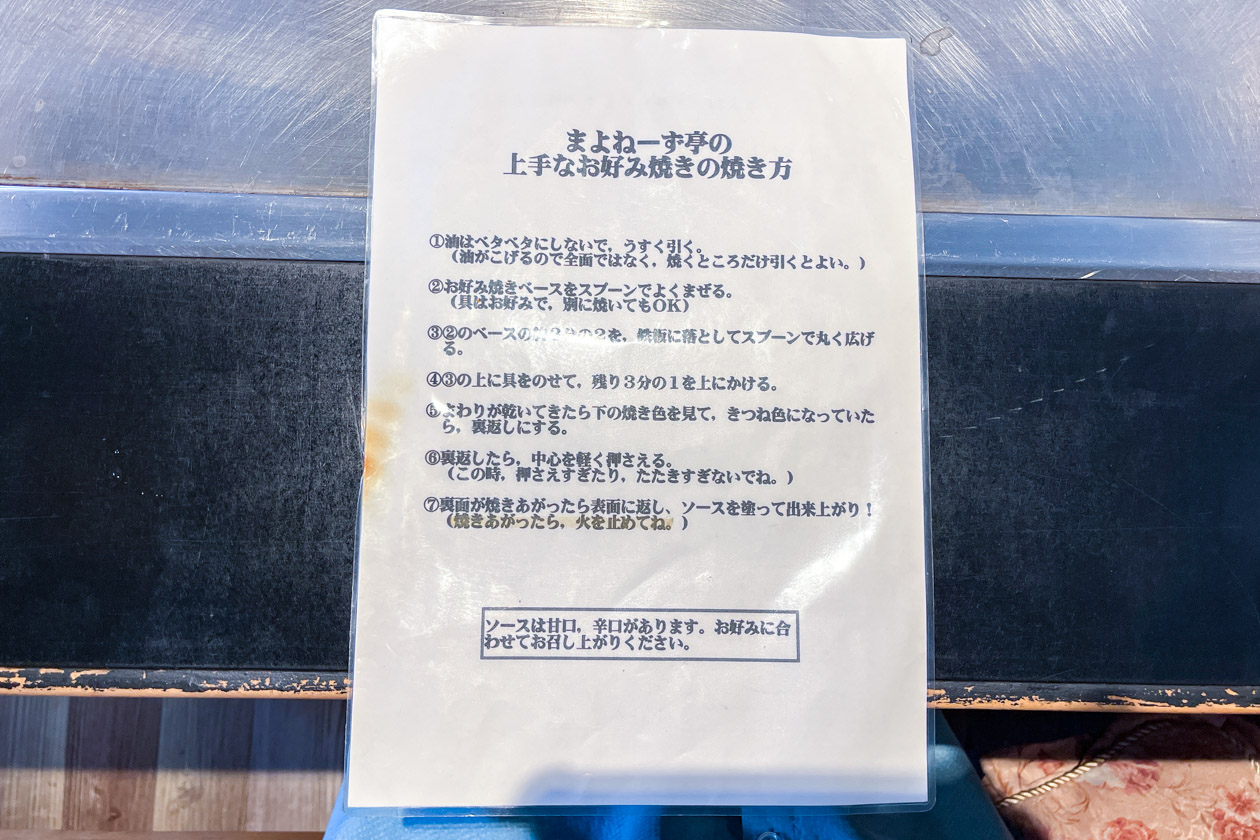 まよねーず亭の
上手なお好み焼きの焼き方
①油はベタベタにしないで，うすく引く。
（油がこげるので全面ではなく，焼くところだけ引くとよい。）
②お好み焼きベースをスプーンでよくまぜる。
（具はお好みで，別に焼いてもOK）
③②のベースの約３分の２を，鉄板に落としてスプーンで丸く広げ
る。
④③の上に具をのせて，残り３分の１を上にかける。
⑤まわりが乾いてきたら下の焼き色を見て，きつね色になっていた
ら，裏返しにする。
⑥裏返したら，中心を軽く押さえる。
（この時，押さえすぎたり，たたきすぎないでね。）
⑦裏面が焼きあがったら表面に返し、ソースを塗って出来上がり！
（焼きあがったら，火を止めてね。）
ソースは甘口，辛口があります。お好みに合
わせてお召し上がりください。